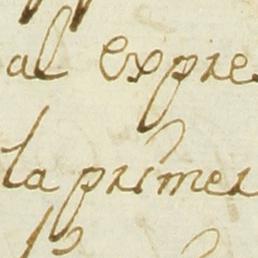 al expre
la primer